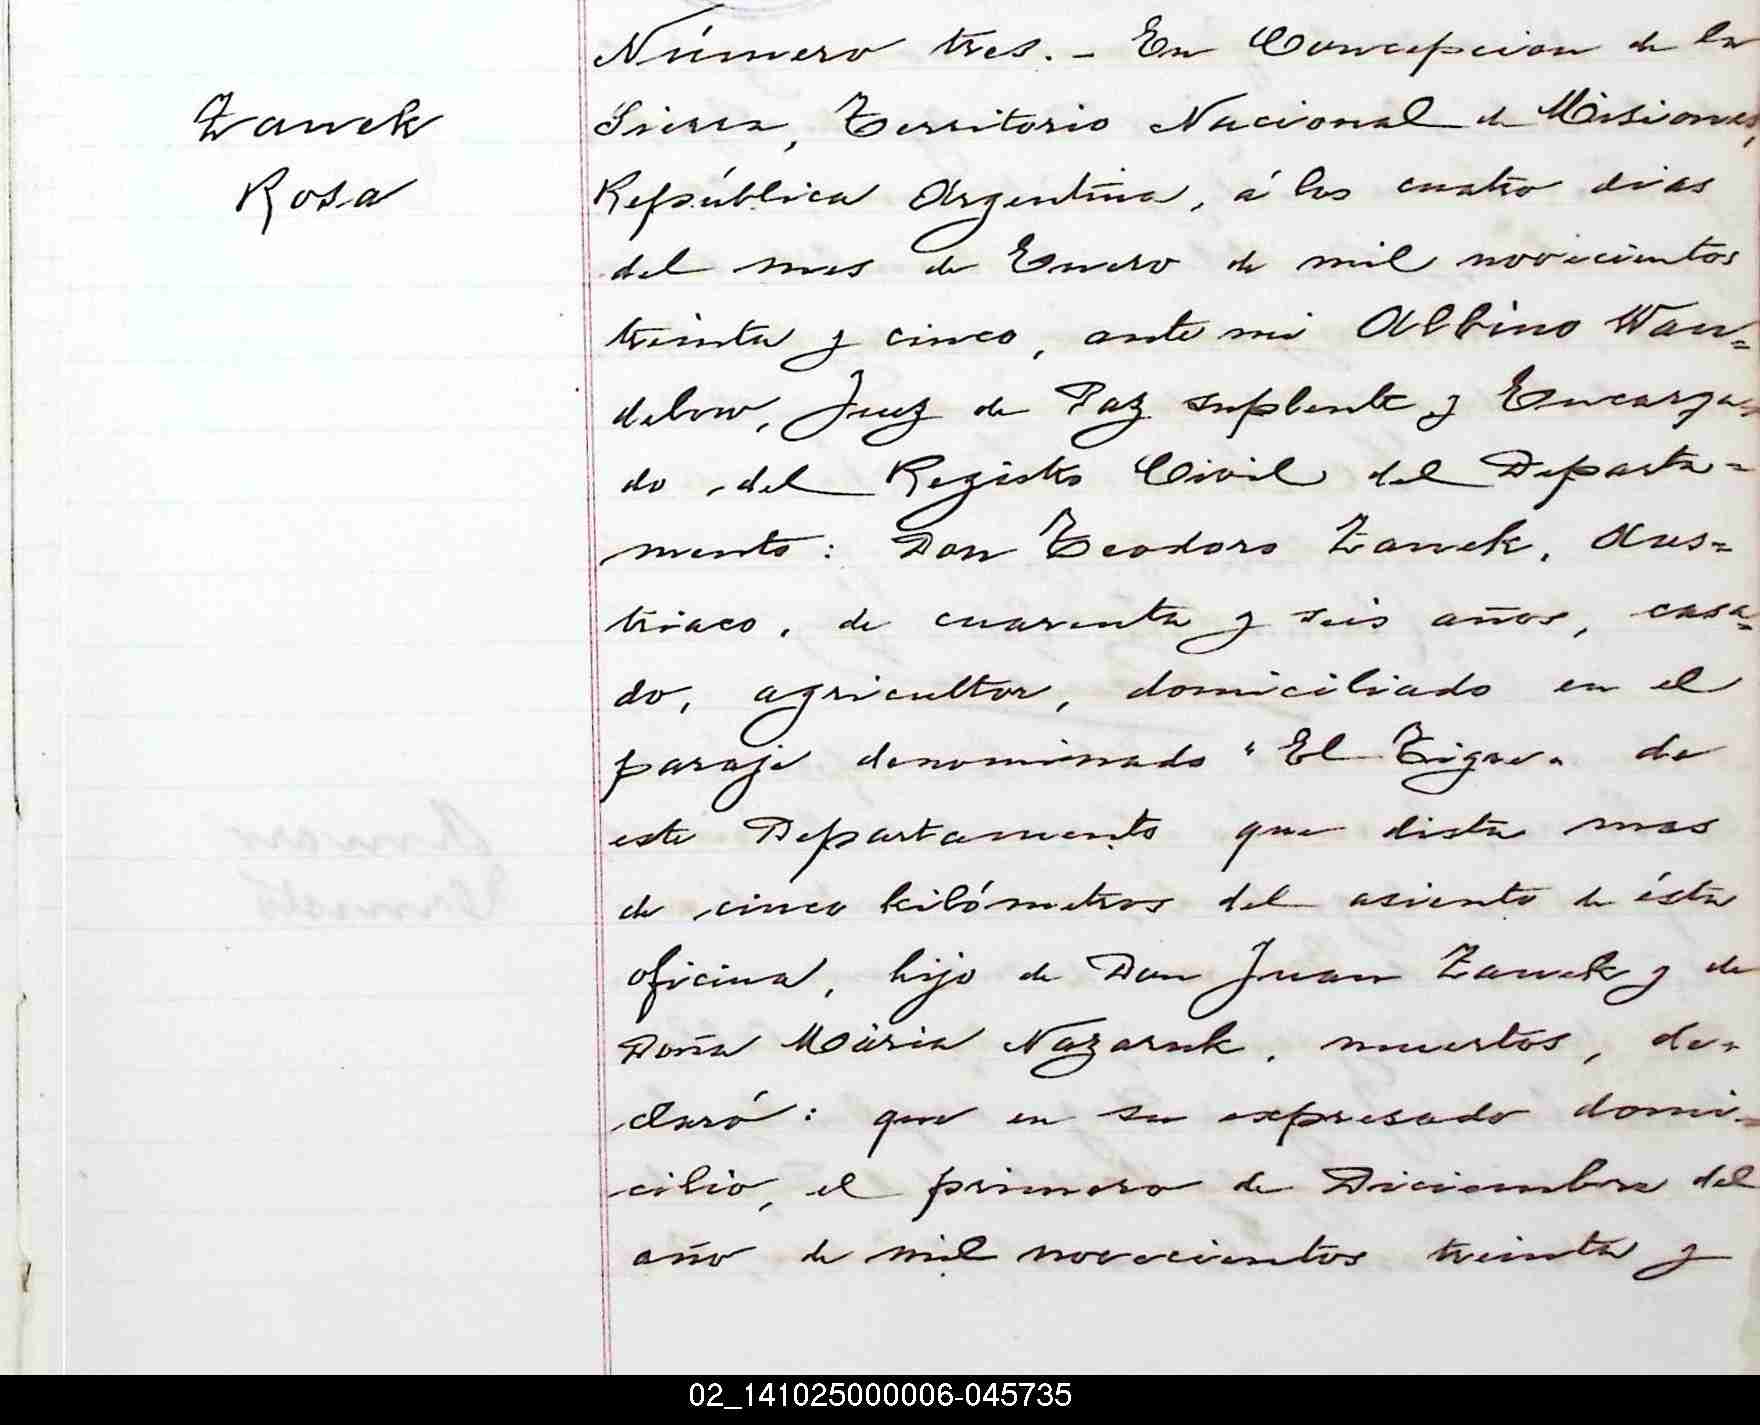 Zawek
Rosa
Número tres. - En Concepcion de la
Sierra, Territorio Nacional de Misiones,
República Argentina, á los cuatro dias
del mes de Enero de mil novecientos
treinta y cinco, ante mi Albino Wan=
delow, Juez de Paz suplente y Encarga=
do del Registro Civil del Departa=
mento: Don Teodoro Zawek, Aus=
triaco, de cuarenta y seis años, casa=
do, agricultor, domiciliado en el
paraje denominado "El Tigre" de
este Departamento que dista mas
de cinco kilómetros del asiento de ésta
oficina, hijo de Don Juan Zawek y de
Doña Maria Nazaruk, muertos, de=
claró: que en su expresado domi=
cilio, el primero de Diciembre del
año de mil novecientos treinta y
02_141025000006-045735